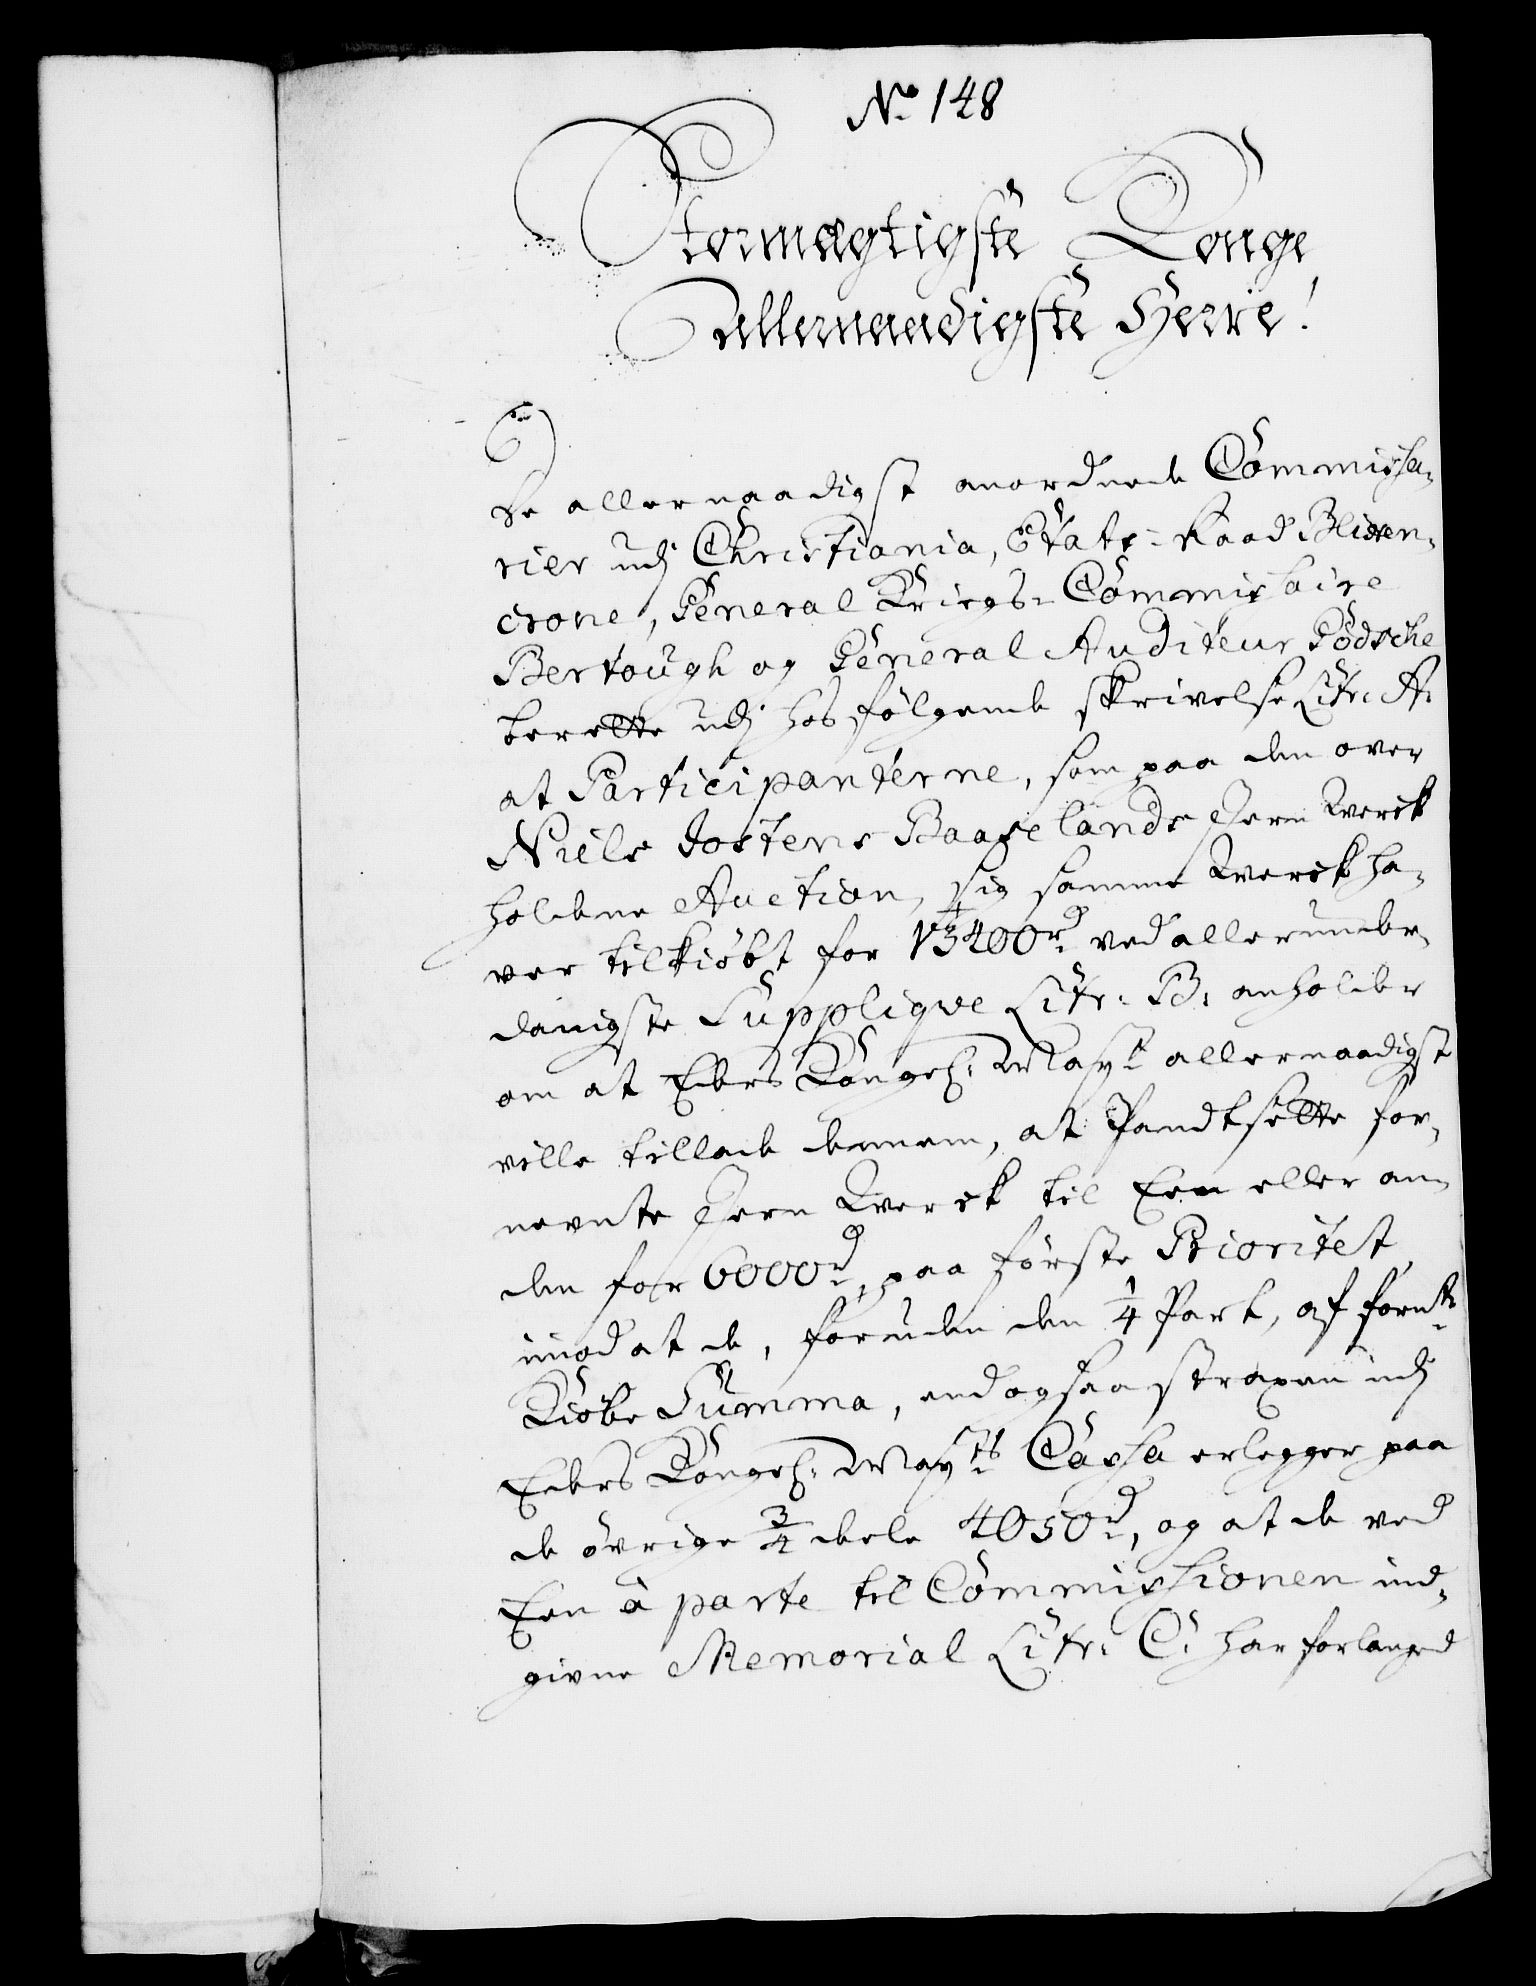 No 148
Stormægtigste Konge
allernaadigste Herre!
De allernaadigst anordnede Commissa-
rier udj Christiania, Etats-Raad Blixen-
crone, General Kriegs-Commissaire
Bertough og General Auditeur Gödsche
berette udj hosfølgende skrivelse Litr: A:
at Participanterne, som paa den over
Niels Jostens Baaselands Jern Werck
holdene Auction, sig samme Werck ha-
ver tilkiøbt for 13400 rd ved allerunde-
danigste Supplique Litr: B: anholder
om at Eders Kongel: Mayt allernaadigst
ville tillade dennem, at Pandtsette for-
nevnte Jern Werck til Een eller an-
den for 6000 rd, paa første Prioritet
imod at de, foruden den 1/4 Part, af fornte
Kiøbe Summa, endogsaa straxen udj
Eders Kongel: Mayts Cassa erlegger paa
de øvrige 3/4 dele 4050 rd, og at de ved
Een à parte til Commissionen ind-
givne Memorial Litr: C: har forlanged